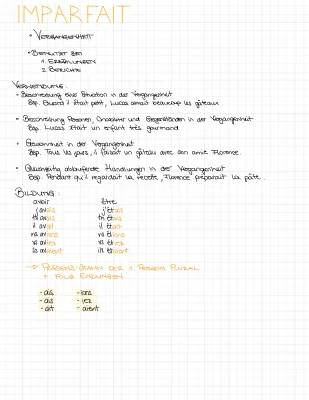 IMPARFAIT
• VERGANGENHEIT
• BENUTZT BEI
1. ERZÄHLUNGEN
2. BERICHTE
VERWENDUNG:
• Beschreibung einer Situation in der Vergangenheit
Bsp. Quand il était petit, Lucas aimait beaucoup les gâteaux
• Beschreibung Personen, Charakter und Gegenständen in der Vergangenheit
Bsp. Lucas était un enfant très gourmand
• Gewohnheit in der Vergangenheit
Bsp. Tous les jours, il faisait un gâteau avec son amie Florence.
• Gleichzeitig ablaufende Handlungen in der Vergangenheit
Bsp. Pendant qu'il regardait la recette, Florence préparait la pâte.
BILDUNG:
avoir être
j'avais j'étais
tu avais tu étais
il avait il était
ns avions ns étions
vs aviez vs étiez
ils avaient ils étaient
→ PRÄSENS STAMM DER 1. PERSON PLURAL
+ FOLG. ENDUNGEN
- ais - ions
- ais - iez
- ait - aient